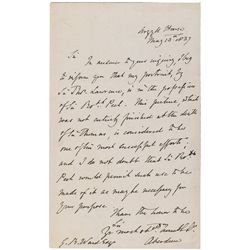 Argyll House
May 13th 1837
Sir
In answer to your enquiry, I beg
to inform you that my portrait, by
Sir Thos. Lawrence, is in the possession
of Sir Robt. Peel. This picture, which
was not entirely finished at the death
of Sir Thomas, is considered to be
one of his most successful efforts;
and I do not doubt that Sir Robt.
Peel would permit such use to be
made of it as may be necessary for
your purpose.
I have the honor to be
Sir
Yr most obt humble St.
Aberdeen
G. R. Ward Esqr